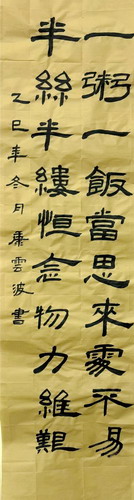 一粥一飯當思來處不易
半絲半縷恒念物力維艱
乙巳年冬月康雲波書